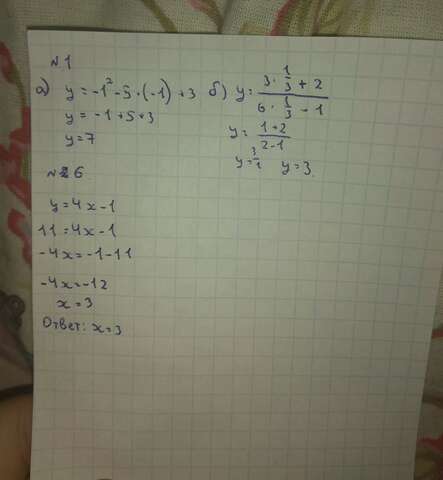 №1
а) y = -1² - 5 · (-1) + 3 б) y = (3 · 1/3 + 2)/(6 · 1/3 - 1)
y = -1 + 5 + 3 y = (1+2)/(2-1)
y = 7 y = 3/1 y = 3.
№ 6
y = 4x - 1
11 = 4x - 1
-4x = -1 - 11
-4x = -12
x = 3
Ответ: x = 3